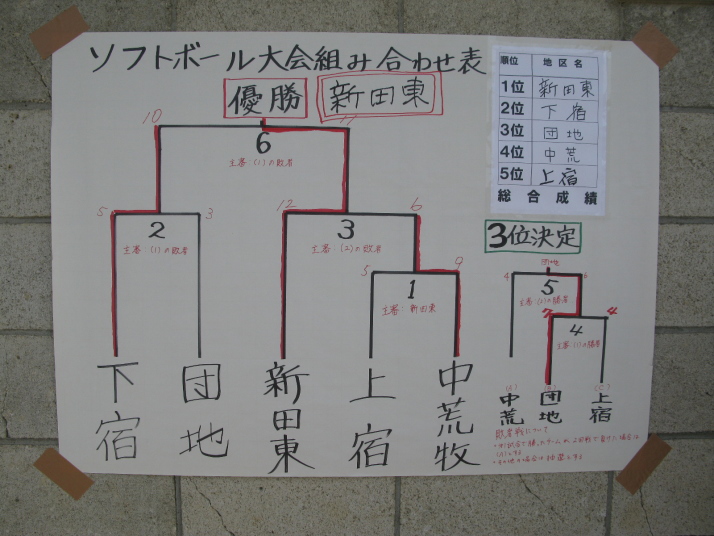 ソフトボール大会組み合わせ表
優勝 新田東
順位 地区名
1位 新田東
2位 下宿
3位 団地
4位 中荒
5位 上宿
総合成績
10 11
6
主審(1)の敗者
5 3
2
主審(1)の敗者
12 6
3
主審(2)の敗者
5 9
1
主審 新田東
下宿
団地
新田東
上宿
中荒牧
3位決定
団地
4 6
5
主審(2)の勝者
7 4
4
主審(1)の勝者
(A) (B) (C)
中荒
団地
上宿
敗者戦について